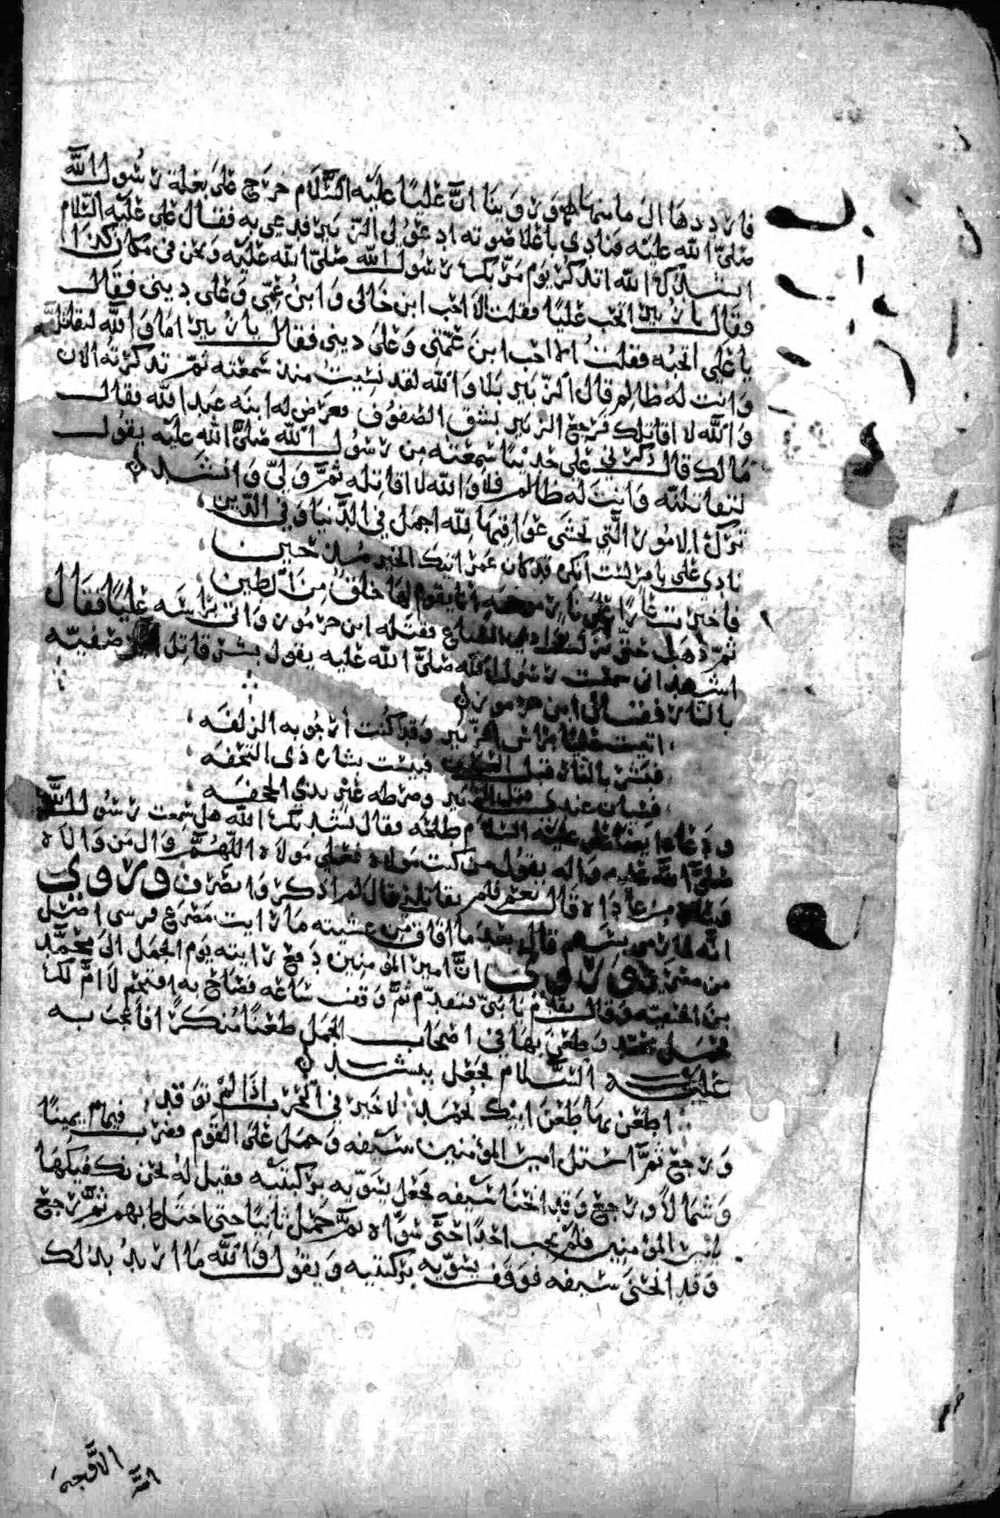 فاردد دها الى ما سماها وروينا ان عليا عليه السلام خرج على بغلة رسول الله
صلى الله عليه فنادى باعلا صوته ادعو لي الزبير فدعي به فقال علي عليه السلام
انشدك الله اتذكر يوم مر بك رسول الله صلى الله عليه ونحن في مكان كذا
فقال يا زبير اتحب عليا فقلت الا احب ابن خالي وابن عمي وعلى ديني فقال
يا علي اتحبه فقلت الا احب ابن عمتي وعلى ديني فقال يا زبير اما والله لتقاتلنه
وانت له ظالم قال الزبير بلا والله لقد نسيت منذ سمعته ثم تذكرته الان
والله لا اقاتلك فرجع الزبير يشق الصفوف فعرض له ابنه عبد الله فقال
مالك قال ذكرني علي حديثا سمعته من رسول الله صلى الله عليه يقول
لتقاتلنه وانت له ظالم فلا والله لا اقاتله ثم ولى وانشد
ترك الامور التي تخشى عواقبها لله اجمل في الدنيا وفي الدين
نادى علي بامر لست انكره قد كان عمر ابيك الخير مذ حين
فاخترت عارا على نار ما يقوم لها خلق من الطين
ثم ذهب حتى نزل بوادي السباع فقتله ابن جرموز واتى براسه عليا فقال
اشهد اني سمعت رسول الله صلى الله عليه يقول بشر قاتل ابن صفيه
بالنار فقال ابن جرموز
اتيت عليا براس الزبير وقد كنت ارجو به الزلفه
فبشر بالنار قبل فبئست بشارة ذي التحفه
فسيان عندي قتل الزبير وضرطه عنز بذي الجحفه
ودعا بعده علي عليه السلام طلحه فقال نشدتك الله هل سمعت رسول الله
صلى الله عليه واله يقول من كنت مولاه فعلي مولاه اللهم وال من والاه
وعاد من عاداه قال نعم فلم تقاتلني قال لم اذكر وانصرف وروي
انه لما رمي بسهم قال بعد ما افاق من غشيته ما رايت مصرع قرشي اضل
من مصرعي وروي ان امير المومنين دفع رايته يوم الجمل الى محمد
بن الحنفيه وقال تقدم يا بني فتقدم ثم وقف ساعه فصاح به اقتحم لا ام لك
فحمل محمد وطعن بها في اصحاب الجمل طعنا منكرا فاعجب به
عليه السلام فجعل ينشد
اطعن بها طعن ابيك تحمد لا خير في الحرب اذا لم توقد
ورجع ثم استل امير المومنين سيفه وحمل على القوم فضرب فيهم يمينا
وشمالا ورجع وقد انحنا سيفه فجعل يسويه بركبتيه فقيل له نحن نكفيكها
يا امير المومنين فلم يجب احدا حتى سواه ثم حمل ثانيا حتى اختلط بهم ثم رجع
وقد انحنى سيفه فوقف يسويه بركبتيه ويقول والله ما اريد بذلك